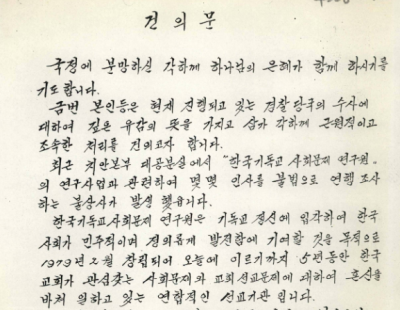 건의문
국정에 분망하신 각하께 하나님의 은혜가 함께 하시기를
기도합니다.
금번 본인등은 현재 진행되고 있는 경찰당국의 수사에
대하여 깊은 유감의 뜻을 가지고 삼가 각하께 근원적이고
조속한 처리를 건의코자 합니다.
최근 치안본부 대공분실에서 "한국기독교 사회문제 연구원"
의 연구사업과 관련하여 몇몇 인사를 불법으로 연행 조사
하는 불상사가 발생 했읍니다.
한국기독교사회문제 연구원은 기독교 정신에 입각하여 한국
사회가 민주적이며 정의롭게 발전함에 기여할 것을 목적으로
1979년 2월 창립되어 오늘에 이르기까지 5년동안 한국
교회가 관심갖는 사회문제와 교회선교문제에 대하여 혼신을
바쳐 일하고 있는 연합적인 선교기관 입니다.